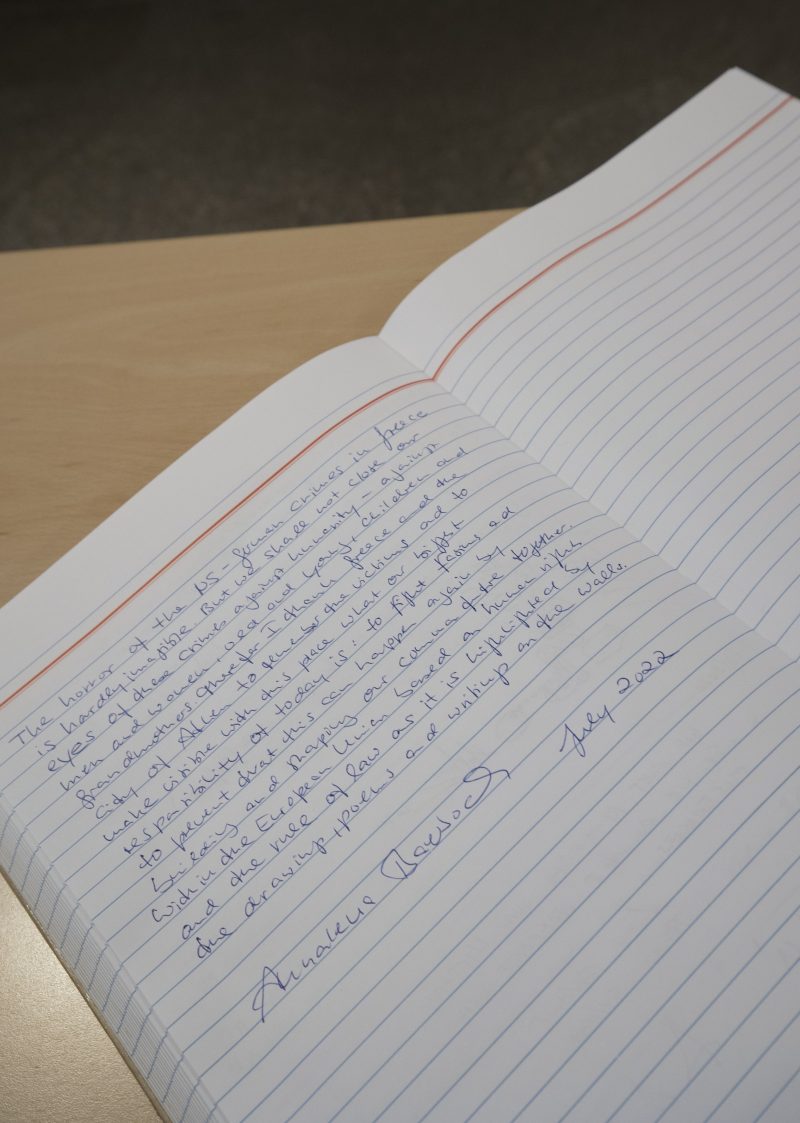 The horror of the NS-German Crimes in Greece
is hardly imagible. But we shall not close our
eyes of these crimes against humanity - against
men and women, old and young, children and
grandmothers. Therefor I thank Greece and the
City of Athen to remember the victims and to
make visible with this place what our biggest
responsibility of today is: to fight fasims ad
to prevent that this can happen again by
building and shaping our common future together.
Within the European Union based on human rights
and the rule of law as it is highlighted by
the drawing, poems and writing on the walls.
Annalena Baerbock July 2022